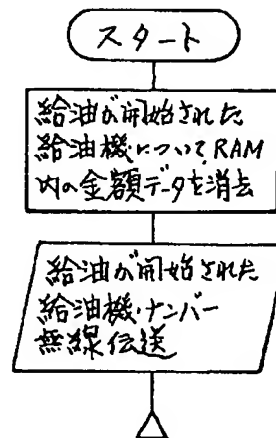 スタート
給油が開始された
給油機についてRAM
内の金額データを消去
給油が開始された
給油機ナンバー
無線伝送